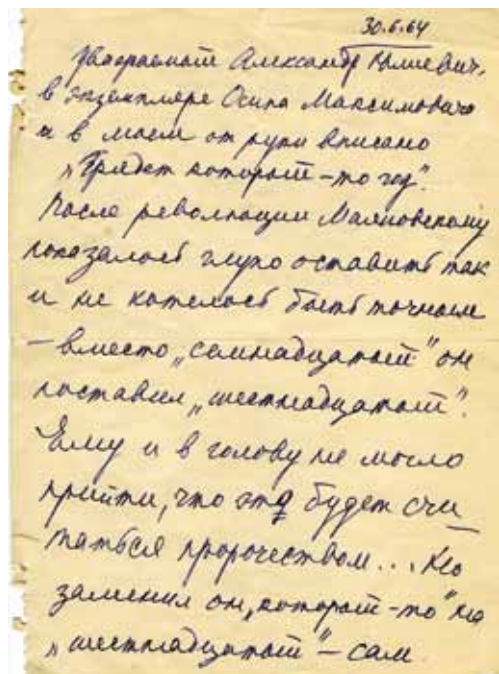 30.6.64
Уважаемый Александр Юлиевич,
в экземпляре Осипа Максимовича
и в моем от руки вписано
„Грядет который-то год".
После революции Маяковскому
показалось глупо оставить так
и не хотелось быть точным
— вместо „семнадцатый" он
поставил „шестнадцатый".
Ему и в голову не могло
прийти, что это будет счи-
таться пророчеством... Но
заменил он „который-то" на
„шестнадцатый" — сам